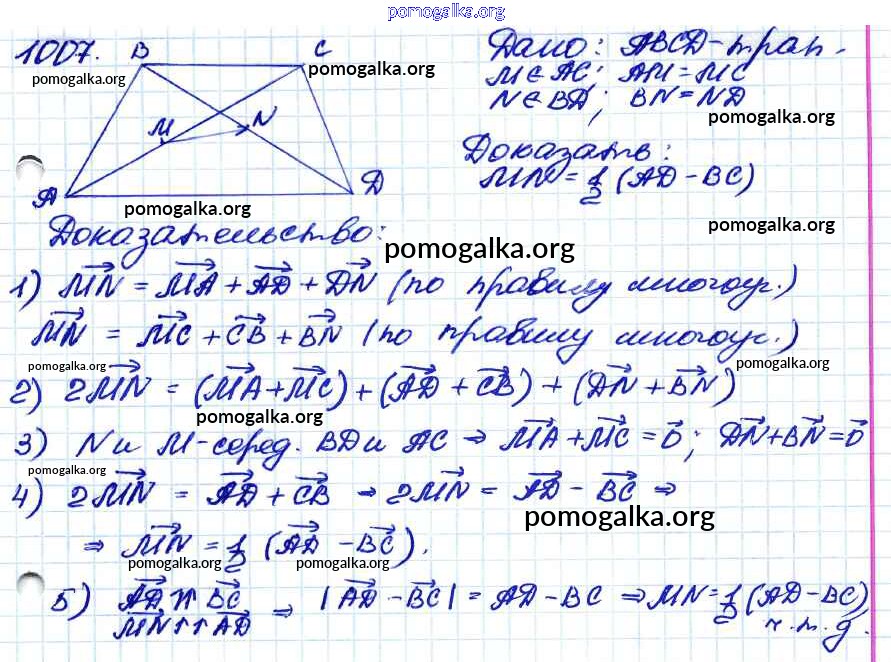 pomogalka.org
1007. B C Дано: ABCD - трап.
pomogalka.org pomogalka.org M ∈ AC; AM = MC
N ∈ BD; BN = ND
M N pomogalka.org
Доказать:
MN = 1/2 (AD - BC)
A D
pomogalka.org pomogalka.org
Доказательство:
pomogalka.org
1) MN⃗ = MA⃗ + AD⃗ + DN⃗ (по правилу многоуг.)
MN⃗ = MC⃗ + CB⃗ + BN⃗ (по правилу многоуг.)
pomogalka.org pomogalka.org
2) 2MN⃗ = (MA⃗ + MC⃗) + (AD⃗ + CB⃗) + (DN⃗ + BN⃗)
pomogalka.org
3) N и M - серед. BD и AC ⇒ MA⃗ + MC⃗ = 0⃗; DN⃗ + BN⃗ = 0⃗
pomogalka.org
4) 2MN⃗ = AD⃗ + CB⃗ → 2MN⃗ = AD⃗ - BC⃗ ⇒
pomogalka.org
⇒ MN⃗ = 1/2 (AD⃗ - BC⃗).
pomogalka.org pomogalka.org
5) AD⃗ ↑↑ BC⃗ ⇒ |AD⃗ - BC⃗| = AD - BC ⇒ MN = 1/2 (AD - BC)
MN⃗ ↑↑ AD⃗ ч.т.д.